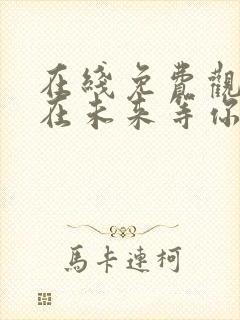 在綫免費觀
在未来等你
馬卡連柯